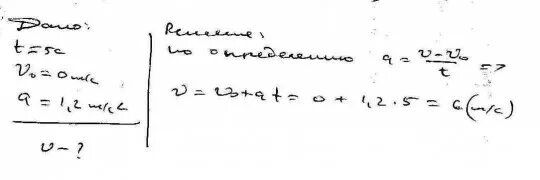 Дано:
t = 5с
v₀ = 0 м/с
a = 1,2 м/с²
v – ?
Решение:
по определению a = (v – v₀)/t =>
v = v₀ + at = 0 + 1,2 · 5 = 6 (м/с)